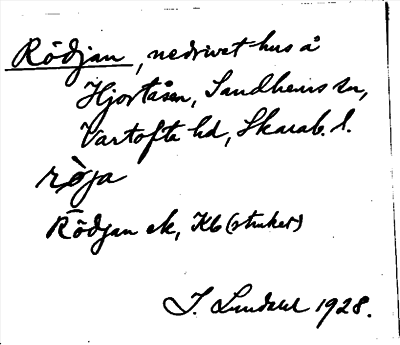 Rödjan, nedrivet hus å
Hjortåsen, Sandhems sn,
Vartofta hd, Skarab. l.
röja
Rödjan ek, Kb (struket)
J. Lundahl 1928.